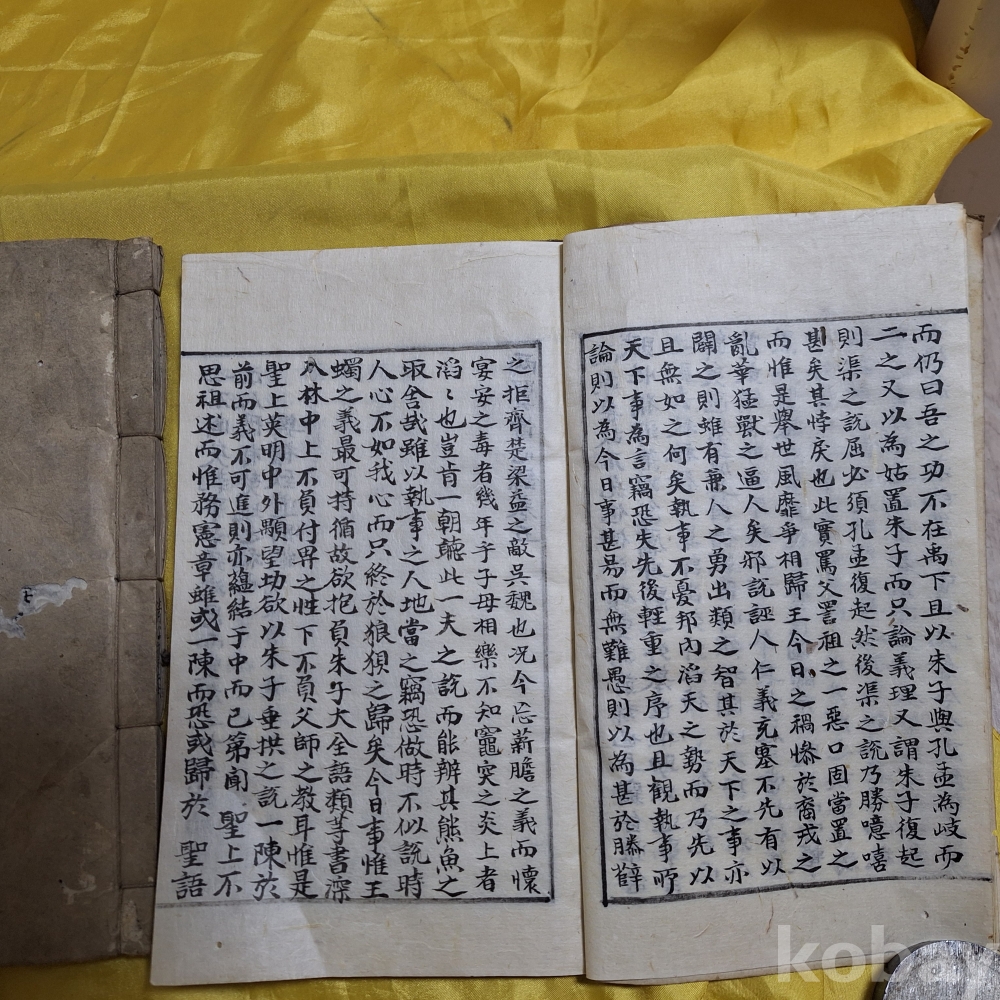 而仍曰吾之功不在禹下且以朱子與孔孟為岐而
二之又以為姑置朱子而只論義理又謂朱子復起
則渠之說屈必須孔孟復起然後渠之說乃勝噫嘻
甚矣其悖戾也此實罵父詈祖之一惡口固當置之
而惟是舉世風靡爭相歸王今日之禍慘於裔戎之
亂華猛獸之逼人矣邪說誣人仁義充塞不先有以
闢之則雖有兼人之勇出類之智其於天下之事亦
且無如之何矣執事不憂邦內滔天之勢而乃先以
天下事為言竊恐失先後輕重之序也且觀執事所
論則以為今日事甚易而無難愚則以為甚於滕薛
之拒齊楚梁益之敵吳魏也况今忘薪膽之義而懷
宴安之毒者幾年子子母相樂不知竈突之炎上者
滔〻也豈肯一朝聽此一夫之說而能辨其熊魚之
取舍哉雖以執事之人地當之竊恐做時不似說時
人心不如我心而只終於狼狽之歸矣今日事惟王
蠋之義最可持循故欲抱負朱子大全語類等書深
入林中上不負付畀之性下不負父師之教耳惟是
聖上英明中外顒望切欲以朱子垂拱之說一陳於
前而義不可進則亦蘊結于中而已第聞 聖上不
思祖述而惟務憲章雖或一陳而恐或歸於 聖語
kobay